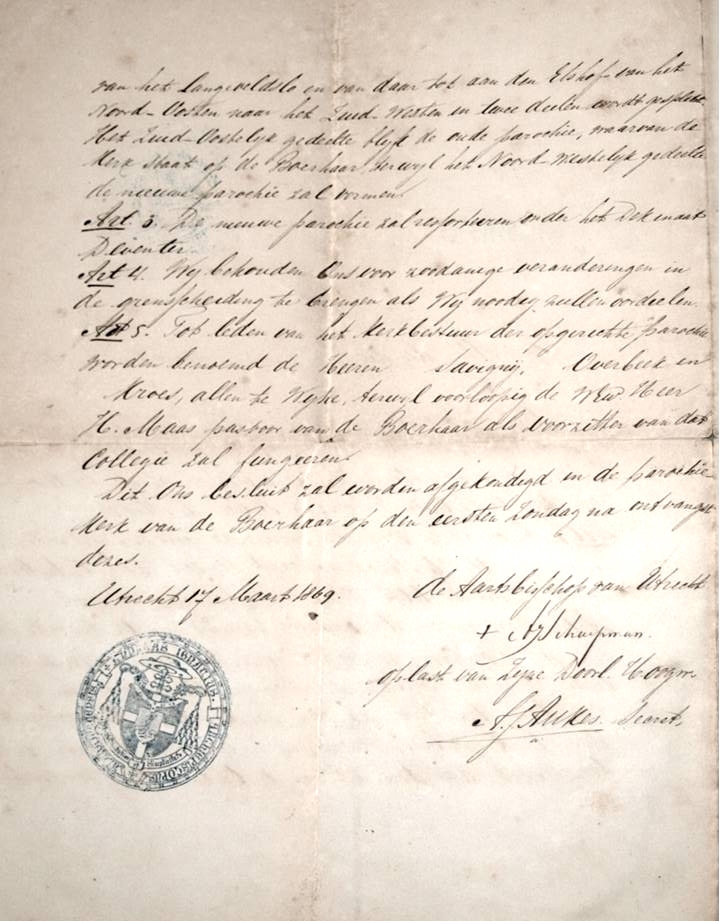 van het Langeveldslo en van daar tot aan den Elshof van het
Noord-Oosten naar het Zuid-Westen in twee deelen wordt gesplitst.
Het Zuid-Oostelijk gedeelte blijft de oude parochie, waarvan de
Kerk staat op de Boerhaar, terwijl het Noord-Westelijk gedeelte
de nieuwe parochie zal vormen.
Art. 3. De nieuwe parochie zal ressorteren onder het Dekenaat
Deventer.
Art 4. Wij behouden Ons voor zoodanige veranderingen in
de grensscheiding te brengen als Wij noodig zullen oordeelen.
Art 5. Tot leden van het Kerkbestuur der opgerichte parochie
worden benoemd de Heeren Savignij, Overbeek en
Kroes, allen te Wyhe, terwijl voorloopig de WEw Heer
H. Maas pastoor van de Boerhaar als voorzitter van dat
Collegie zal fungeren.
Dit Ons besluit zal worden afgekondigd in de parochie-
kerk van de Boerhaar op den eersten Zondag na ontvangst
dezes.
Utrecht 17 Maart 1869.
de Aartsbisschop van Utrecht
+ A J Schaepman.
op last van Zijne Doorl. Hoogw.
Secret.
ANDREAS IGNATIUS
ARCHIEPISCOPUS